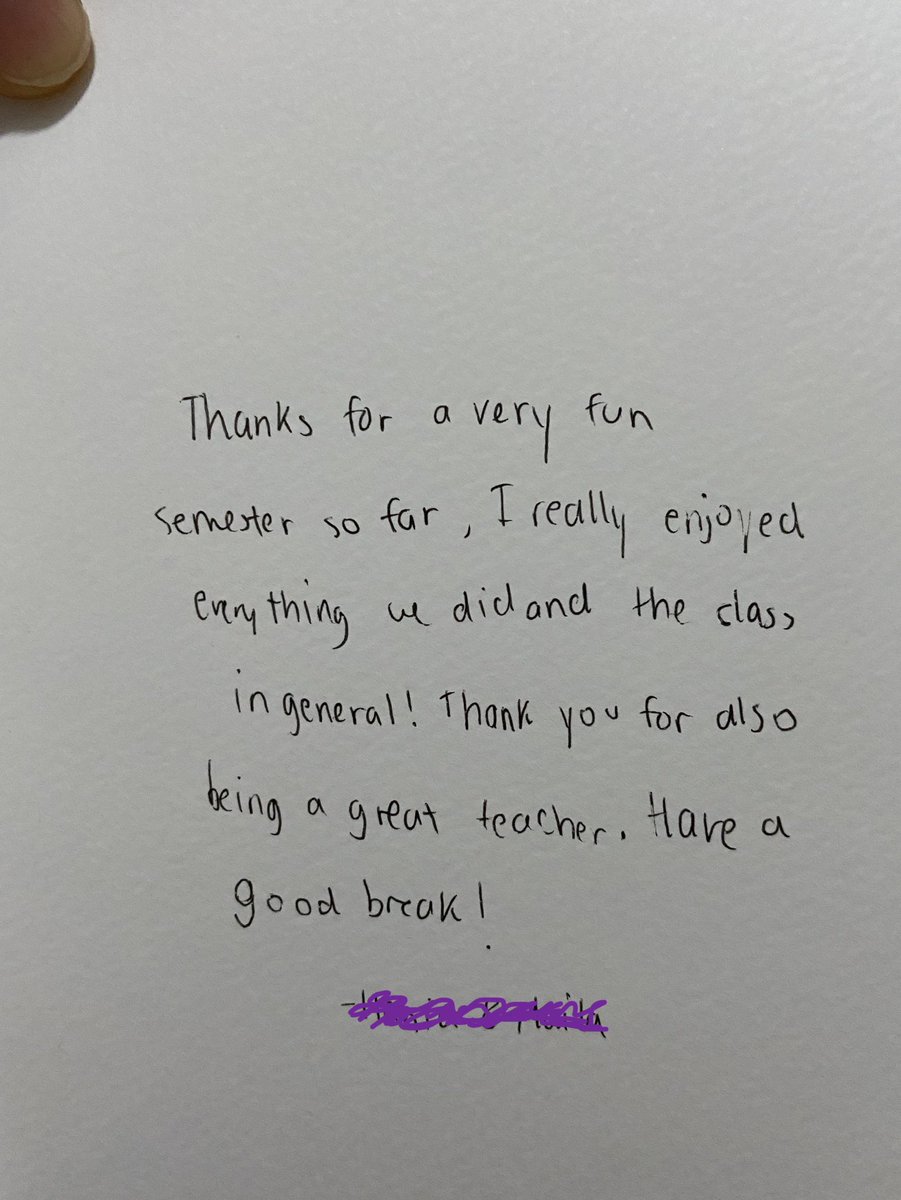 Thanks for a very fun
semester so far, I really enjoyed
everything we did and the class
in general! Thank you for also
being a great teacher. Have a
good break!